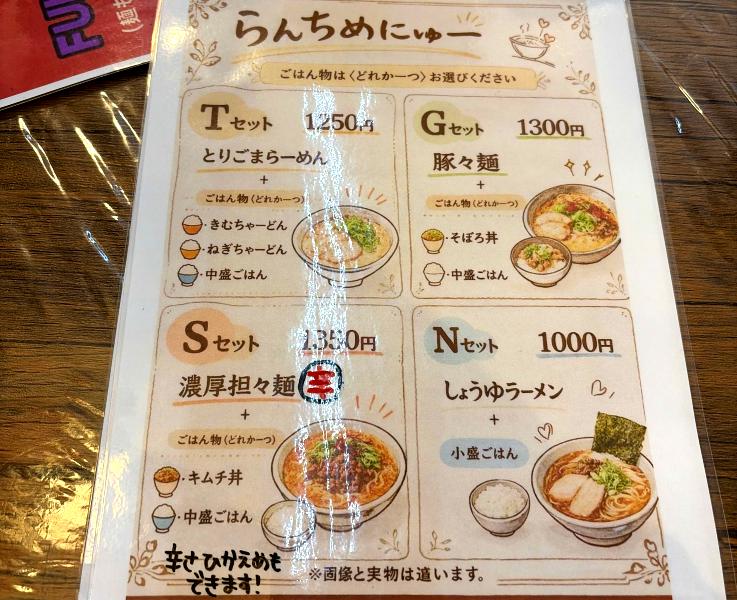 FU
(麺
らんちめにゅー
ごはん物は〈どれか一つ〉お選びください
Tセット 1250円
とりごまらーめん
+
ごはん物(どれか一つ)
・きむちゃーどん
・ねぎちゃーどん
・中盛ごはん
Gセット 1300円
豚々麺
+
ごはん物(どれか一つ)
・そぼろ丼
・中盛ごはん
Sセット 1350円
濃厚担々麺 辛
+
ごはん物(どれか一つ)
・キムチ丼
・中盛ごはん
Nセット 1000円
しょうゆラーメン
+
小盛ごはん
辛さひかえめも
できます!
※画像と実物は違います。